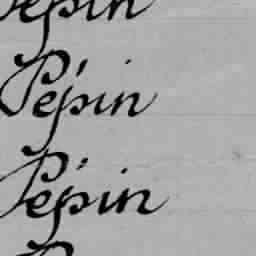 Pépin
Pépin
Pépin